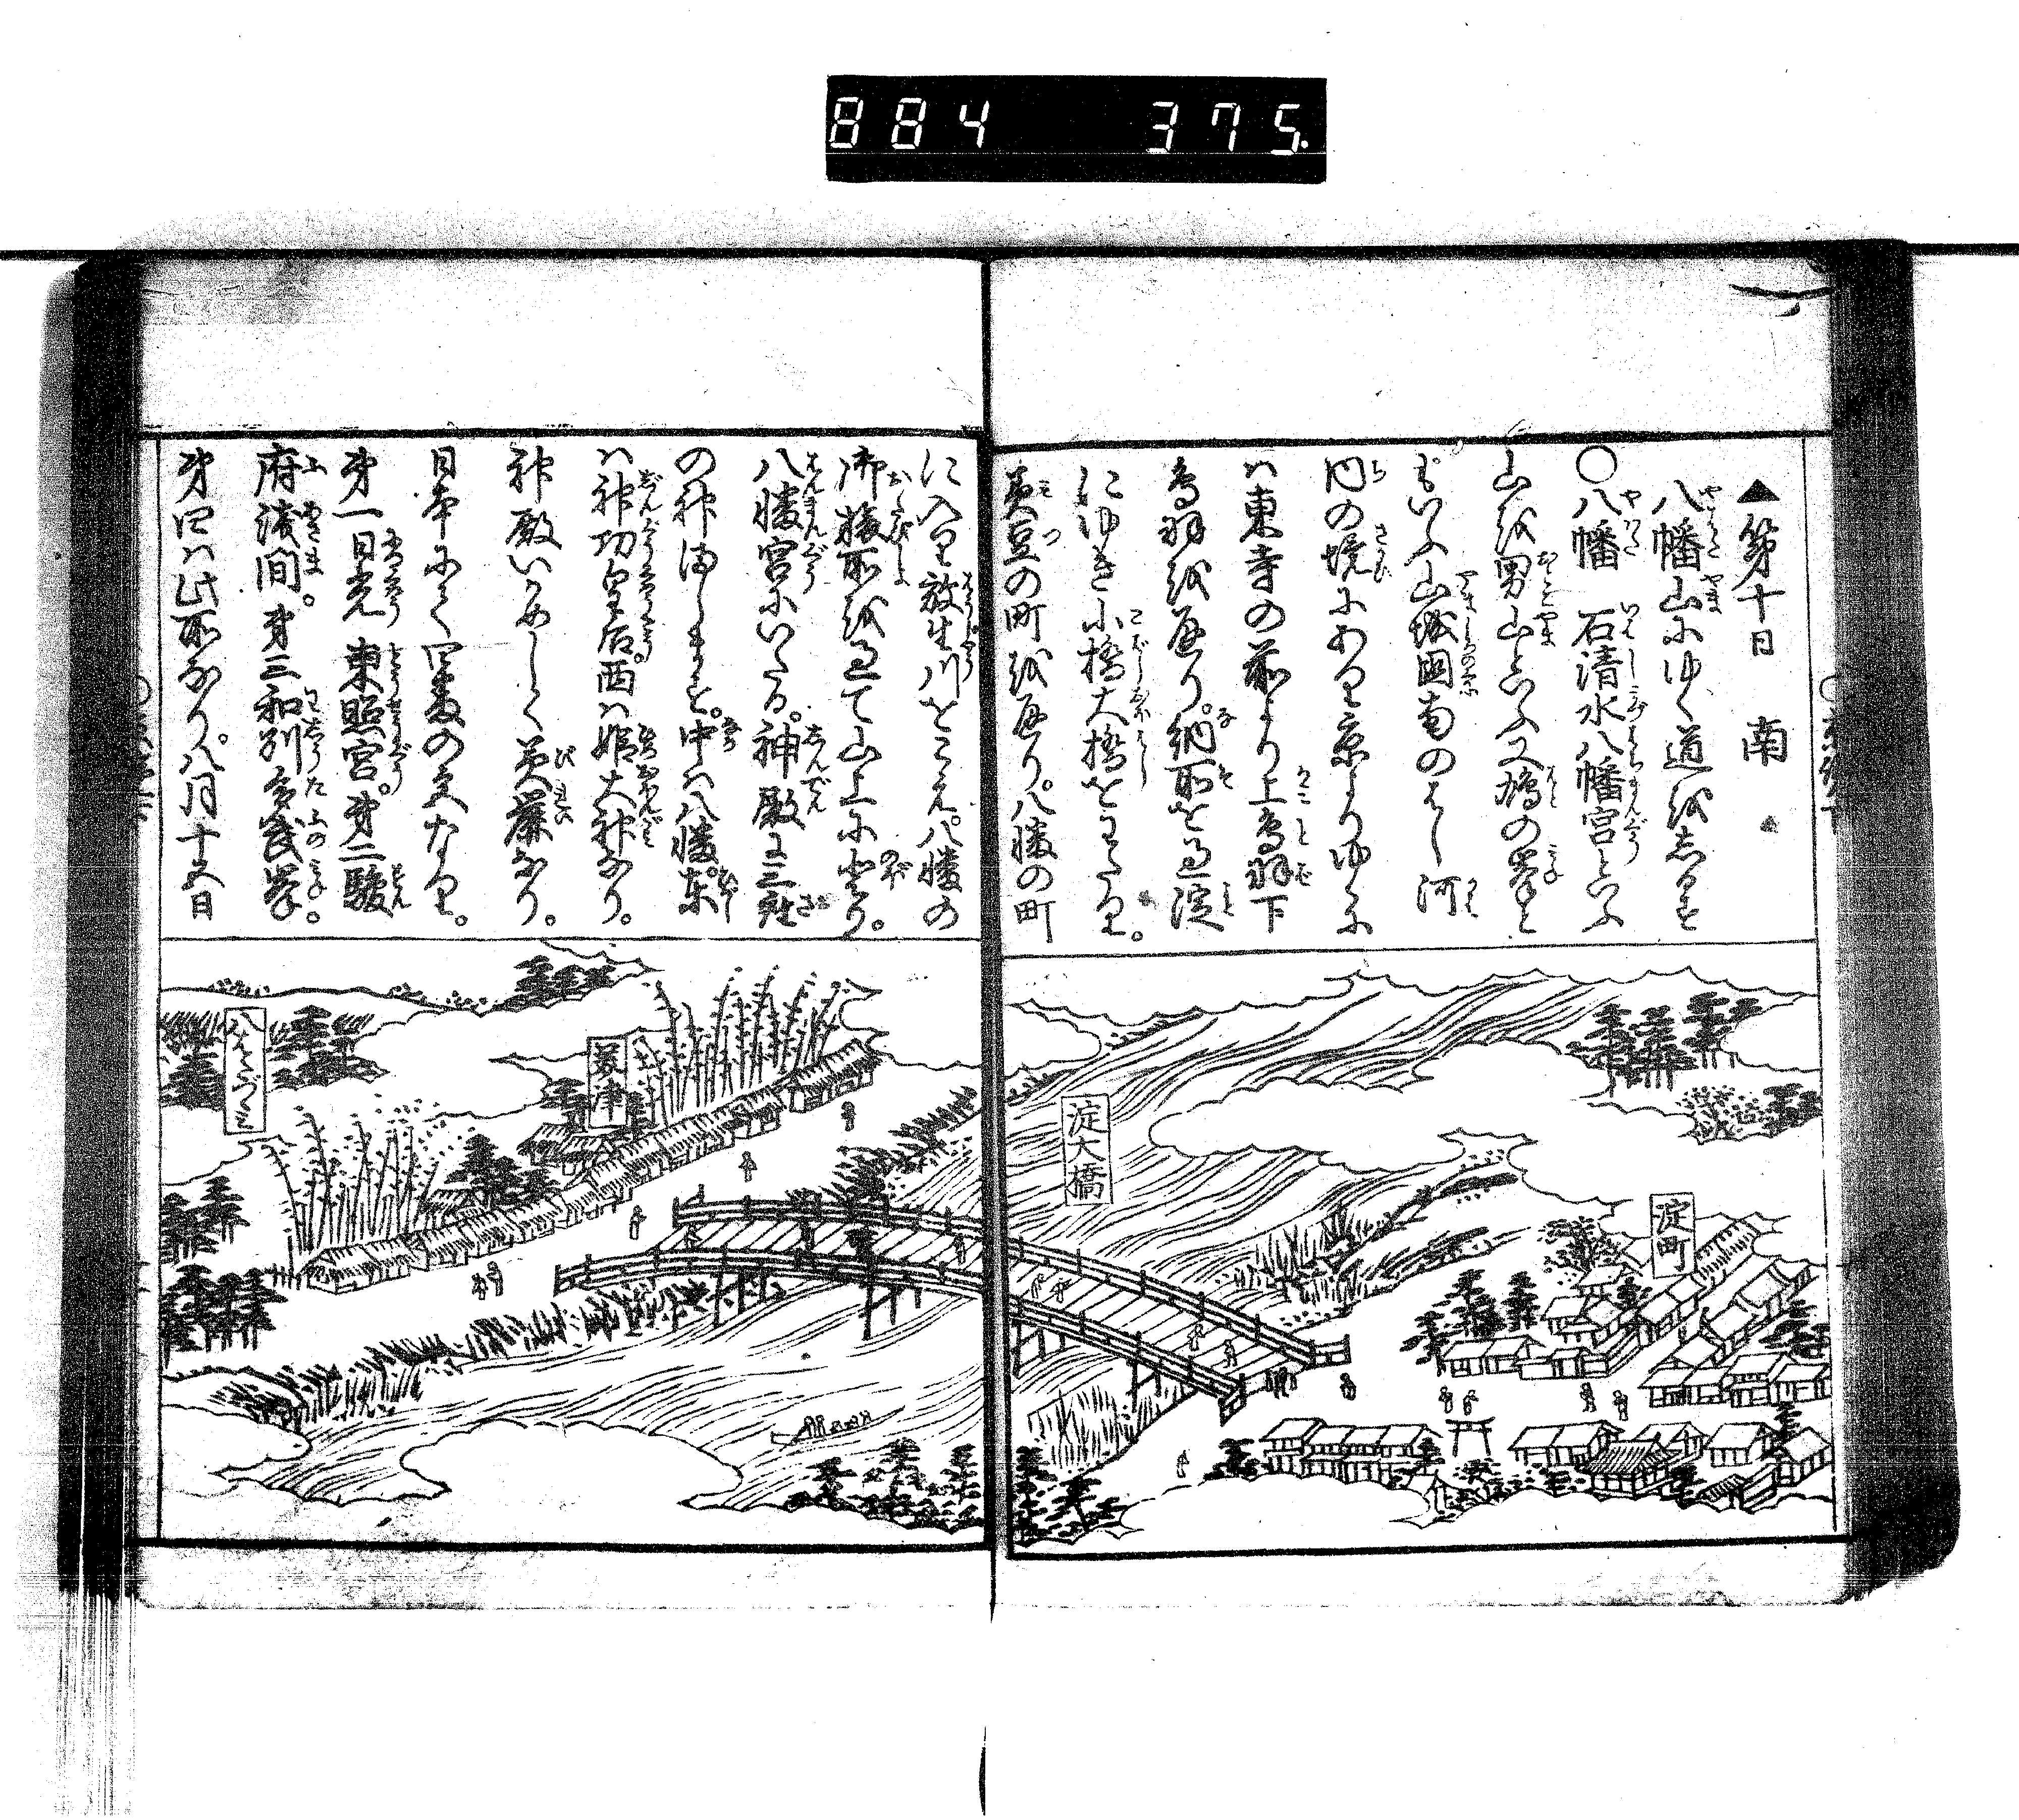 884 375.
▲第十日 南
八幡山にゆく道を志るす
○八幡 石清水八幡宮といふ
山を男山といふ又鳩の峯と
もいふ山城国南のはし河
内の境にあり京よりゆくに
ハ東寺の前より上鳥羽下
鳥羽を通り。納所を過淀
にゆき小橋大橋をわたり。
美豆の町を通り。八幡の町
に入り放生川をこえ。八幡の
御旅所を過て山上にのぼり。
八幡宮にいたる。神殿に三座
の神まします。中ハ八幡。東
ハ神功皇后。西ハ姫大神なり。
神殿いかめしく美麗なり。
日本にて四番の宮なり。
第一日光東照宮。第二駿
府浅間。第三和州多武峯。
第四ハ此所なり。八月十五日
淀大橋
淀町
美津
八わたづゝミ